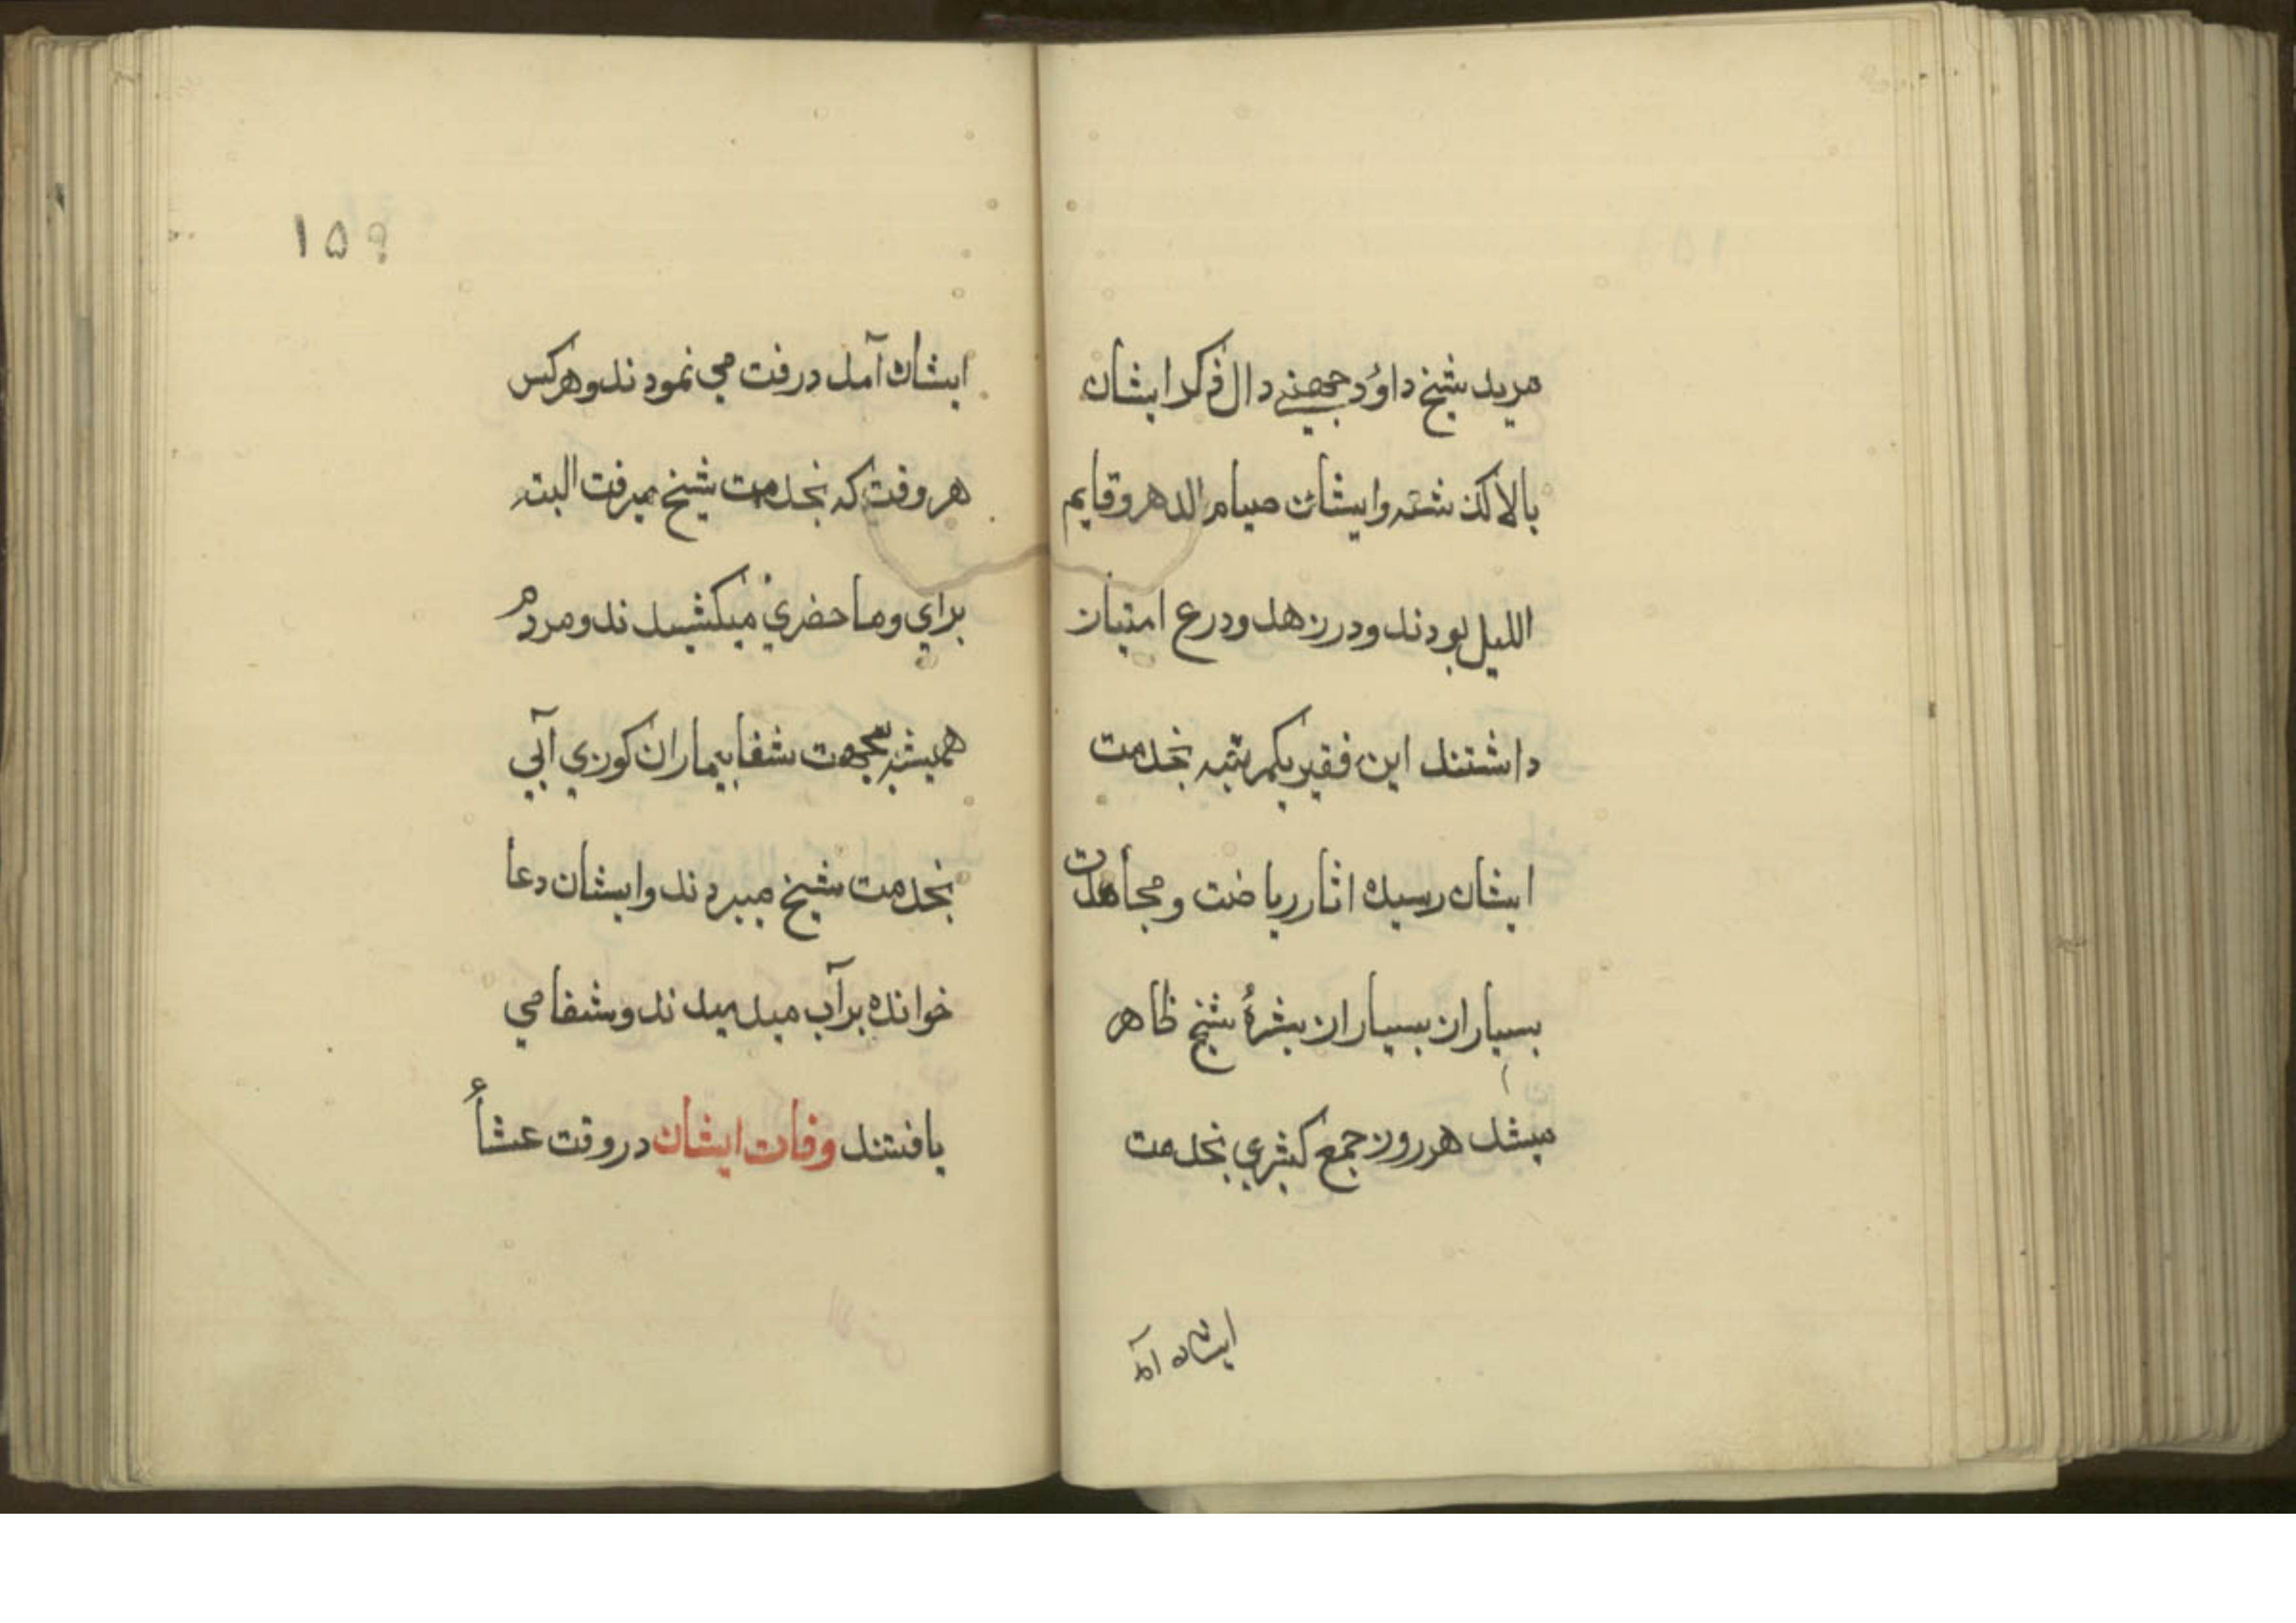 مرید شیخ داؤد جهنے دال ذکر ایشان
بالا کذشته وایشان صیام الدهر وقایم
اللیل بودند ودر زهد ودرع امتیاز
داشتند این فقیر یکمرتبه بخدمت
ایشان رسیده اثار ریاضت ومجاهدت
بسیار از بسیار از بشرهٔ شیخ ظاهر
میشد هر روز جمع کثیری بخدمت
ایشان آمد
۱۵۹
ایشان آمد درفت می نمودند وهرکس
هر وقت که بخدمت شیخ میرفت البته
برای وما حضری میکشیدند ومردم
همیشه بجهت شفا بیماران کوزی آبی
بخدمت شیخ میبردند وایشان دعا
خوانده بر آب میدمیدند وشفا می
یافتند وفات ایشان در وقت عشاء